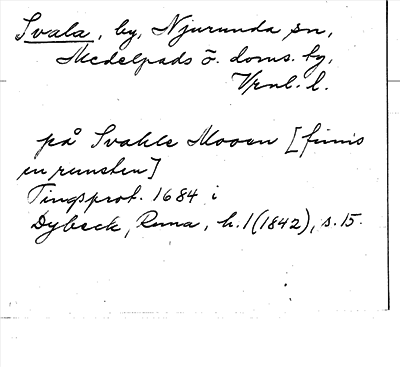 Svala, by, Njurunda sn,
Medelpads ö. doms. by,
Vrnl. l.
på Svahle Mooen [finnis
en runsten]
Tingsprot. 1684 i
Dybeck, Runa, h. 1 (1842), s. 15.